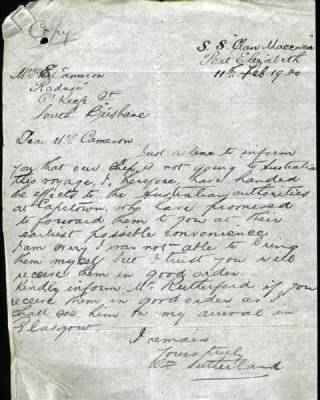 Copy
S. S. "Clan Macewen"
Port Elizabeth
11th Feb 1920
Mrs E. Cameron
"Radnji"
O'Keefe St
South Brisbane
Dear Mrs Cameron
Just a line to inform
you that our ship is not going to Australia
this voyage, I, therefore, have handed
the effects to the Australian authorities
at Capetown, who have promised
to forward them to you at their
earliest possible convenience
I am sorry I was not able to bring
them myself but I trust you will
receive them in good order.
Kindly inform Mr Rutherford if you
receive them in good order as I
shall see him on my arrival in
Glasgow.
I remain
Yours truly
Wm Sutherland